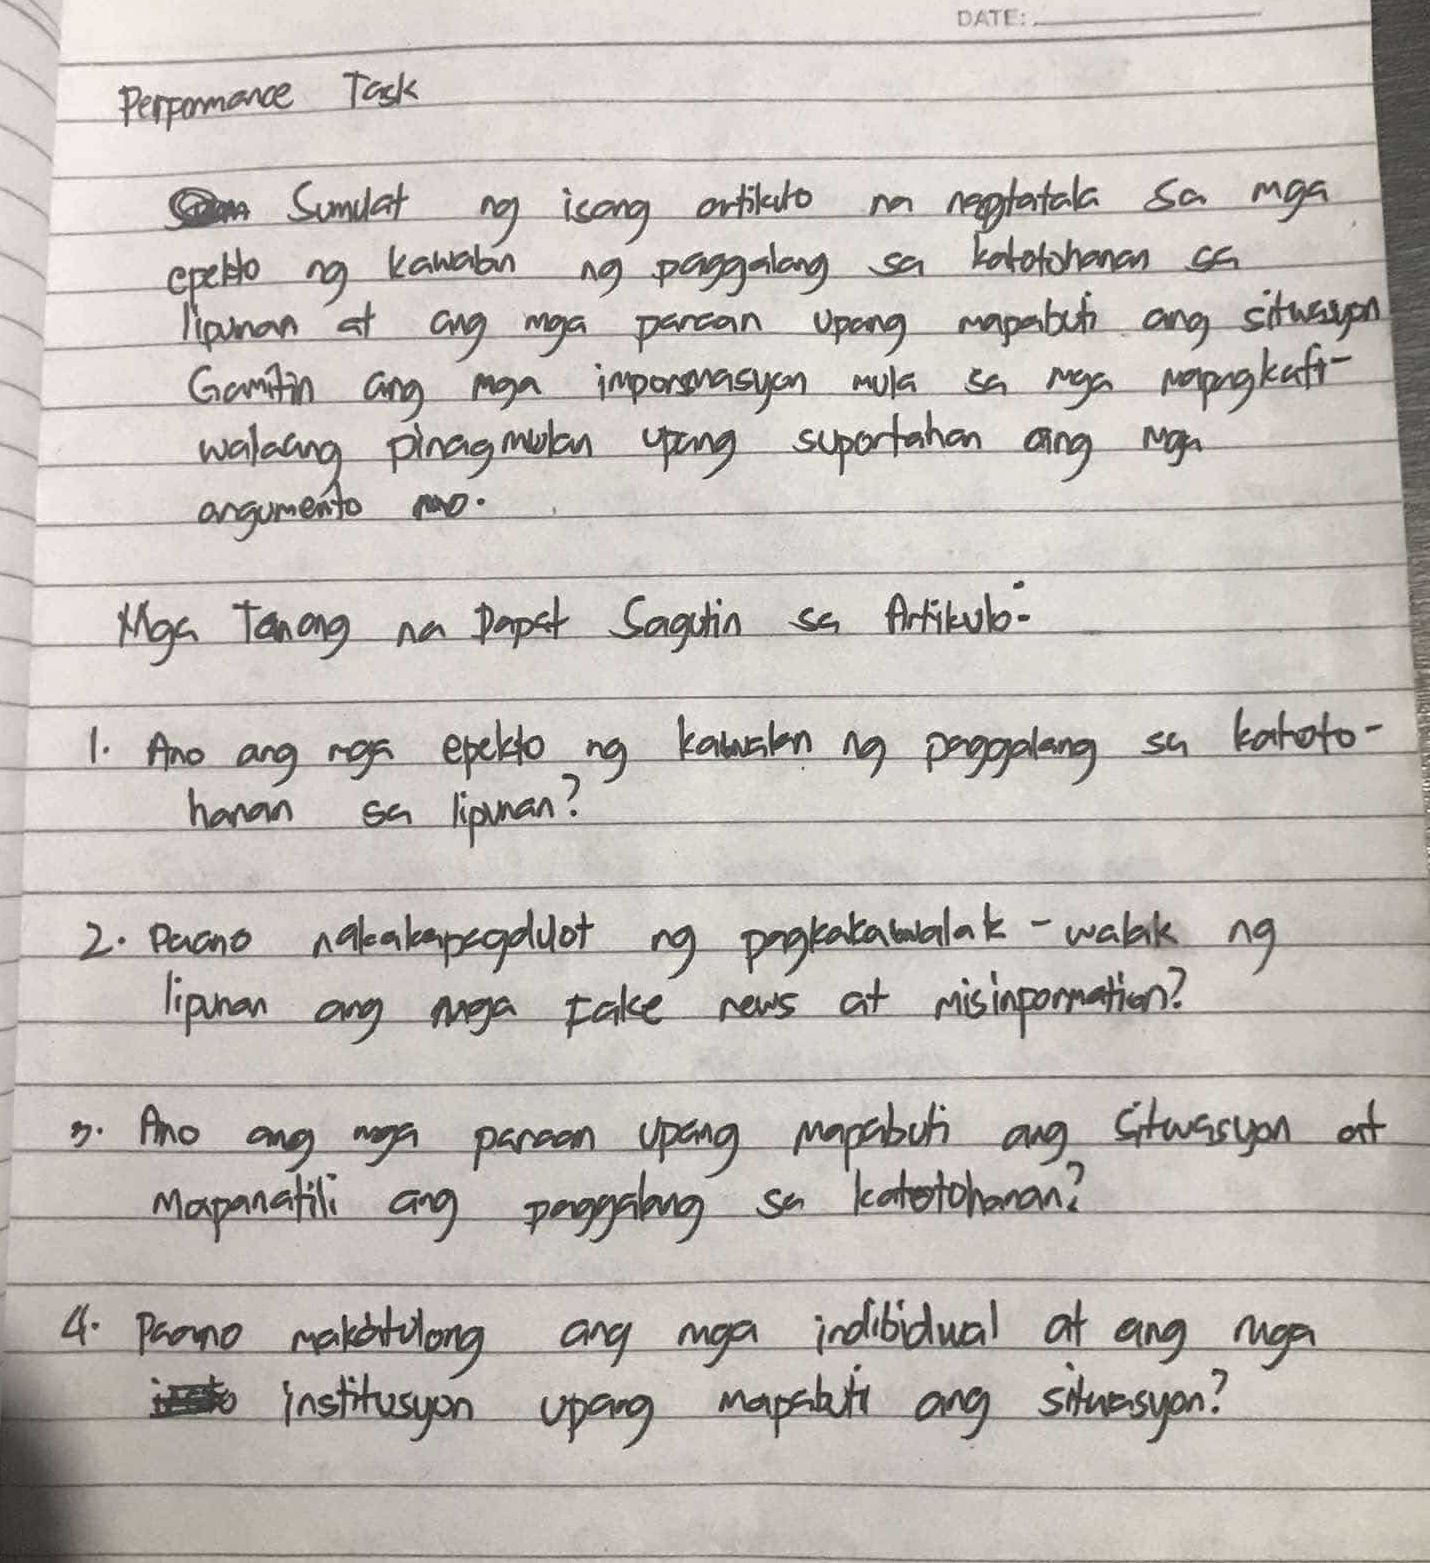 DATE:
Performance Task
Sumulat ng isang artikulo na nagtatala sa mga
epekto ng kawalan ng paggalang sa katotohanan sa
lipunan at ang mga paraan upang mapabuti ang sitwasyon
Gamitin ang mga impormasyon mula sa mga mapagkati-
walaang pinagmulan upang suportahan ang mga
argumento mo.
Mga Tanong na Dapat Sagutin sa Artikulo:
1. Ano ang mga epekto ng kawalan ng paggalang sa katoto-
hanan sa lipunan?
2. Paano nakakapagdulot ng pagkakawalak-walak ng
lipunan ang mga fake news at misinpormation?
3. Ano ang mga paraan upang mapabuti ang sitwasyon at
mapanatili ang paggalang sa katotohanan?
4. Paano makatulong ang mga indibidwal at ang mga
institusyon upang mapabuti ang sitwasyon?